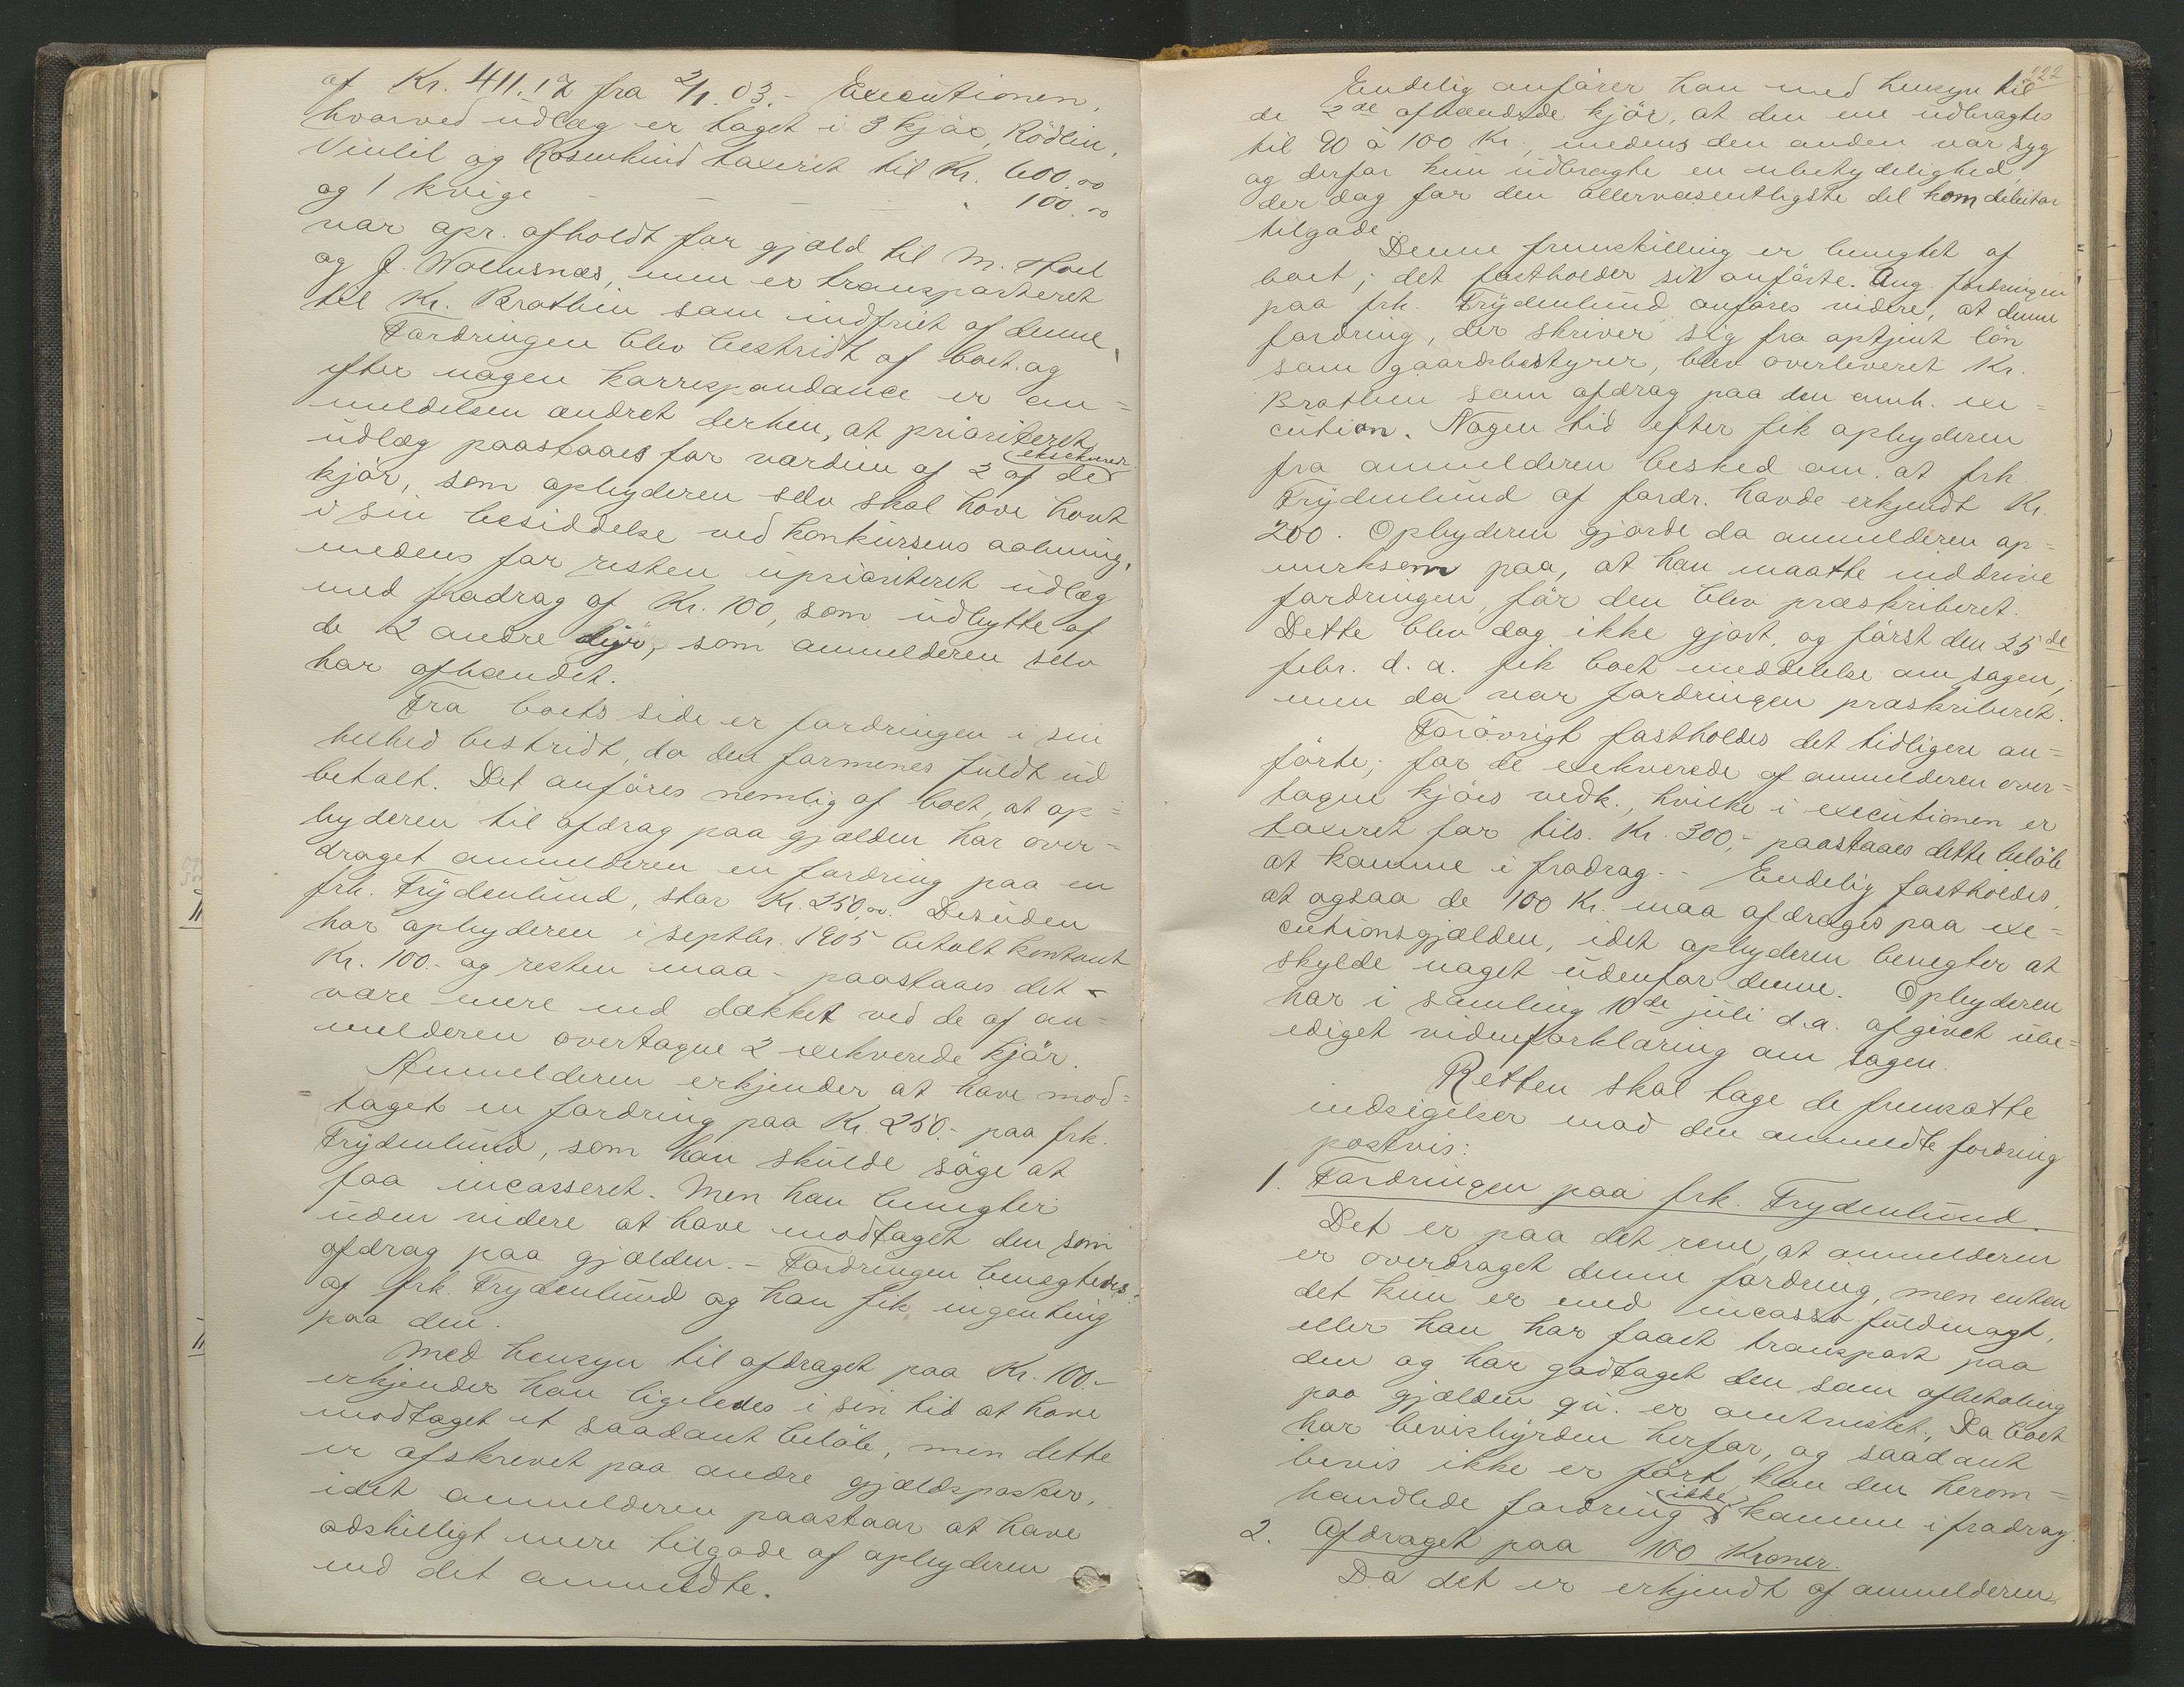 af Kr. 411.17 fra 2/1.03.- Executionen,
hvorved udlæg er taget i 3 kjör, Rödlin,
Vinlil og Rosenhind taxeret til Kr. 600.00
og 1 kvige - - - - " 100.00
var opr. afholdt for gjæld til M. Hoel
og J. Wollusnæs, men er transporteret
til Kr. Brathen som indfriet af denne.
Fordringen blev bestridt af boet og
efter nogen korrespondance er an=
meldelsen ændret derhen, at prioriteret
udlæg paastaaes for værdien af 2 af de exekverede
kjör, som opbyderen selv skal have havt
i sin besiddelse ved konkursens aabning,
medens for resten uprioriteret udlæg
med fradrag af Kr. 100, som udbytte af
de 2 andre dyr, som anmelderen selv
har afhændet.
Fra boets side er fordringen i sin
helhed bestridt, da den formenes fuldt ud
betalt. Det anföres nemlig af boet, at op=
byderen til afdrag paa gjælden har over=
draget anmelderen en fordring paa en
frk. Frydenlund, stor Kr. 250,00. Desuden
har opbyderen i septbr. 1905 betalt kontant
Kr. 100.- og resten maa - paastaaes det -
være mere end dækket ved de af an=
melderen overtagne 2 exekverede kjör.
Anmelderen erkjender at have mod=
taget en fordring paa Kr. 250.- paa frk.
Frydenlund, som han skulde söge at
faa incasseret. Men han benegter
uden videre at have modtaget den som
afdrag paa gjælden. - Fordringen benegtedes
af frk. Frydenlund og han fik ingenting
paa den.
Med hensyn til afdraget paa Kr. 100.-
erkjender han ligeledes i sin tid at have
modtaget et saadant belöb, men dette
er afskrevet paa andre gjældsposter,
idet anmelderen paastaar at have
adskilligt mere tilgode af opbyderen
end det anmeldte.
222
Endelig anförer han med hensyn til
de 2de afhændede kjör, at den ene udbragtes
til 90 à 100 Kr., medens den anden var syg
og derfor kun udbragte en ubetydelighed,
der dog for den allervæsentligste del kom debitor
tilgode.
Denne fremstilling er benegtet af
boet; det fastholder sit anförte. Ang. fordringen
paa frk. Frydenlund anföres videre, at denne
fordring, der skriver sig fra optjent lön
som gaardsbestyrer, blev overleveret Kr.
Brathen som afdrag paa den omh. exe=
cution. Nogen tid efter fik opbyderen
fra anmelderen besked om, at frk.
Frydenlund af fordr. havde erkjendt Kr.
200. Opbyderen gjorde da anmelderen op=
mærksom paa, at han maatte inddrive
fordringen, för den blev præskriberet.
Dette blev dog ikke gjort, og först den 25de
febr. d. a. fik boet meddelelse om sagen,
men da var fordringen præskriberet.
Forövrigt fastholdes det tidligere an=
förte; for de exekverede af anmelderen over=
tagne kjörs vedk., hvilke i executionen er
taxeret for tils. Kr. 300,- paastaaes dette belöb
at komme i fradrag. - Endelig fastholdes,
at ogsaa de 100 Kr. maa afdrages paa exe=
cutionsgjælden, idet opbyderen benegter at
skylde noget udenfor denne. Opbyderen
har i samling 10de juli d.a. afgivet ube=
ediget vidneforklaring om sagen.
Retten skal tage de fremsatte
indsigelser mod den anmeldte fordring
postvis:
1. Fordringen paa frk. Frydenlund.
Det er paa det rene, at anmelderen
er overdraget denne fordring, men enten
det kun er med incassofuldmagt,
eller han har faaet transport paa
den og har godtaget den som afbetaling
paa gjælden qu. er omtvistet. Da boet
har bevisbyrden herfor, og saadant
bevis ikke er fört, kan den herom=
handlede fordring ikke komme i fradrag.
2. Afdraget paa 100 Kroner.
Da det er erkjendt af anmelderen,